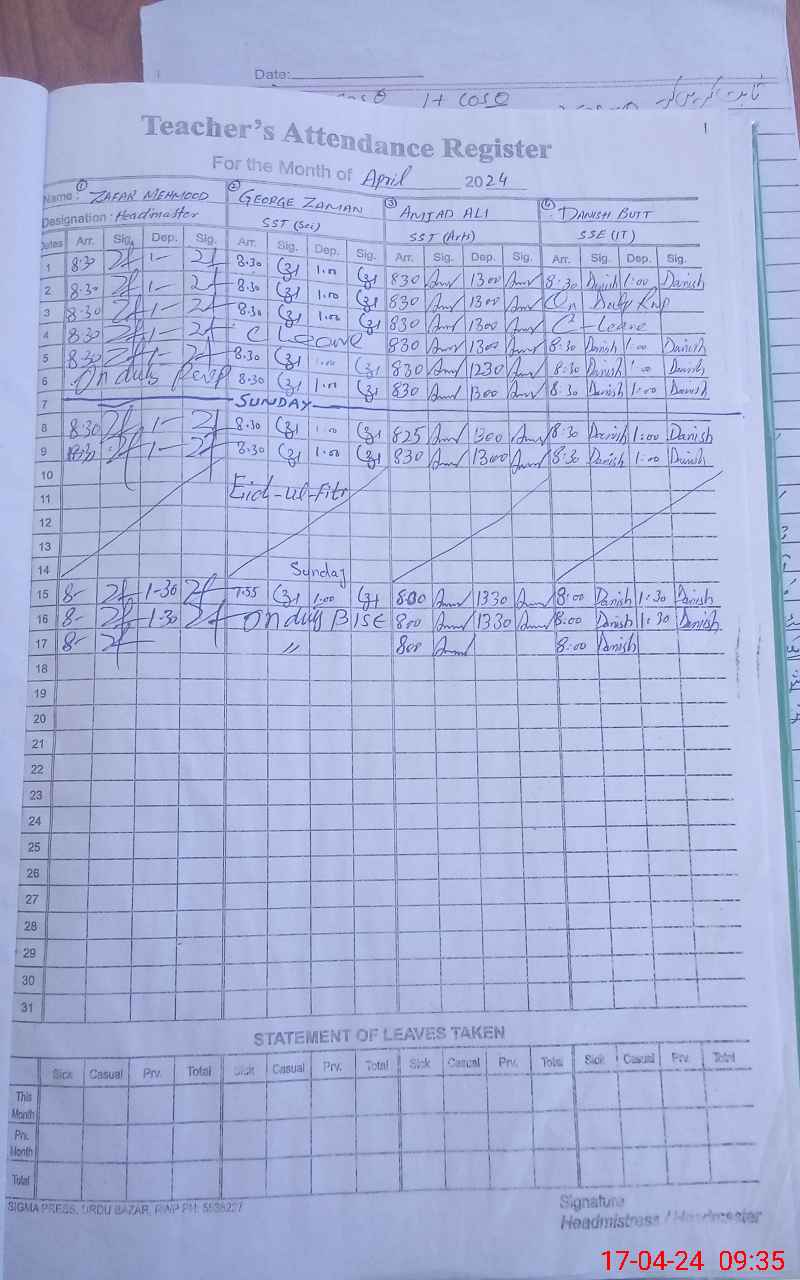 Date:
1 + cos θ
Teacher's Attendance Register
1
For the Month of April 2024
Name: ① ZAFAR MEHMOOD ② GEORGE ZAMAN ③ AMJAD ALI ④ DANISH BUTT
Designation: Headmaster SST (Sci) SST (Arts) SSE (IT)
Dates Arr. Sig. Dep. Sig. Arr. Sig. Dep. Sig. Arr. Sig. Dep. Sig. Arr. Sig. Dep. Sig.
1 8:30 1- 8.30 1.00 830 1300 8:30 Danish 1:00 Danish
2 8:30 1- 8.30 1.00 830 1300 On Duty Rwp
3 8:30 1- 8.30 1.00 830 1300 C-Leave
4 8:30 1- C Leave 830 1300 8:30 Danish 1:00 Danish
5 8:30 1- 8.30 1.00 830 1230 8:30 Danish 1:00 Danish
6 On duty Rwp 8.30 1.00 830 1300 8:30 Danish 1:00 Danish
7 SUNDAY
8 8:30 1- 8.30 1.00 825 1300 8:30 Danish 1:00 Danish
9 8:30 1- 8.30 1.00 830 1300 8:30 Danish 1:00 Danish
10
11 Eid-ul-Fitr
12
13
14 Sunday
15 8- 1-30 7.55 1.00 800 1330 8:00 Danish 1:30 Danish
16 8- 1.30 On duty BISE 800 1330 8:00 Danish 1:30 Danish
17 8- 〃 800 8:00 Danish
18
19
20
21
22
23
24
25
26
27
28
29
30
31
STATEMENT OF LEAVES TAKEN
Sick Casual Prv. Total Sick Casual Prv. Total Sick Casual Prv. Total Sick Casual Prv. Total
This Month
Prv. Month
Total
SIGMA PRESS, URDU BAZAR, RWP PH: 5538227
Signature
Headmistress / Headmaster
17-04-24 09:35